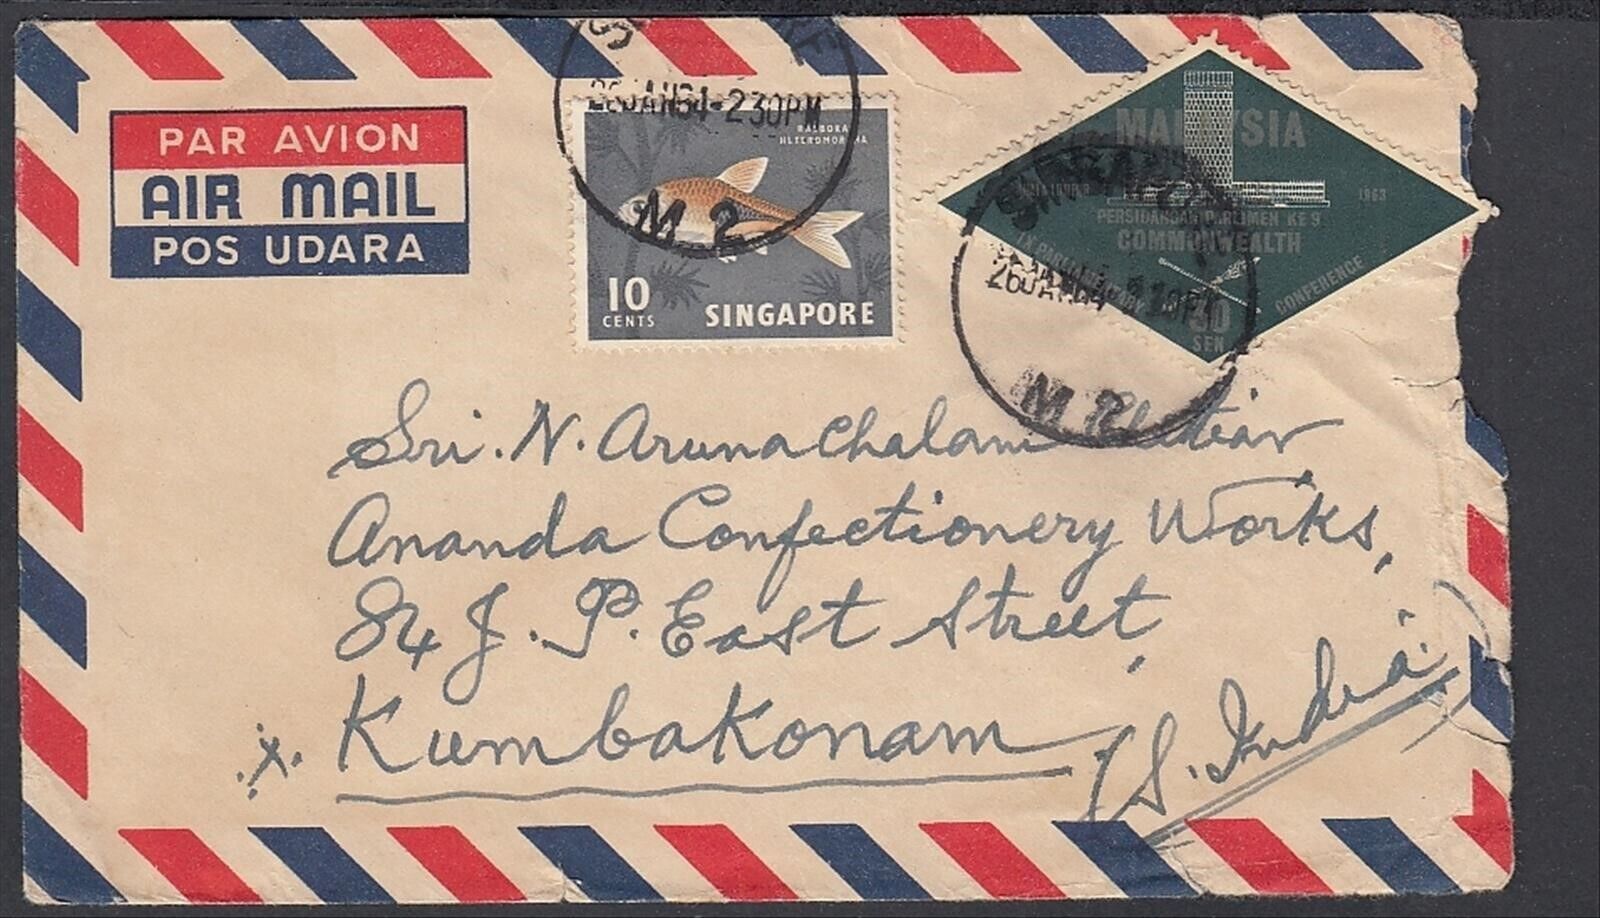 PAR AVION
AIR MAIL
POS UDARA
26JAN64-230PM
M 2
RASBORA
HETEROMORPHA
10
CENTS
SINGAPORE
MALAYSIA
KUALA LUMPUR 1963
PERSIDANGAN PARLIMEN KE 9
COMMONWEALTH
IX PARLIAMENTARY CONFERENCE
30
SEN
SINGAPORE
26JAN64
M 2
Sri. N. Arunachalam Chettiar
Ananda Confectionery Works,
84 J. P. East Street,
.x. Kumbakonam
(S. India)